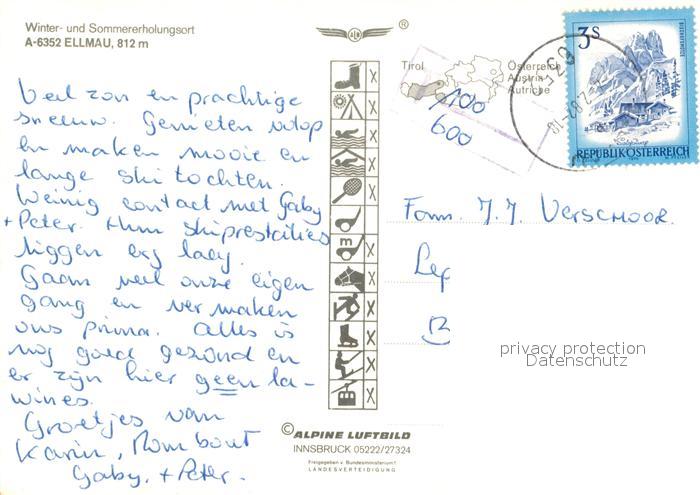 Winter- und Sommererholungsort
A-6352 ELLMAU, 812 m
Veel zon en prachtige
sneeuw. Genieten volop
en maken mooie en
lange ski tochten.
Weinig contact met Gaby
+ Peter. Hun skiprestaties
liggen erg laag.
Gaan veel onze eigen
gang en vermaken
ons prima. Alles is
nog goed gezond en
er zijn hier geen la-
wines.
Groetjes van
Karin, Rombout
Gaby. + Peter.
®
Tirol
Österreich
Austria
Autriche
100
600
3s
REPUBLIK ÖSTERREICH
Fam. J. J. Verschoor.
Lep
B
privacy protection
Datenschutz
m
© ALPINE LUFTBILD
INNSBRUCK 05222/27324
Freigegeben v. Bundesministerium f.
LANDESVERTEIDIGUNG